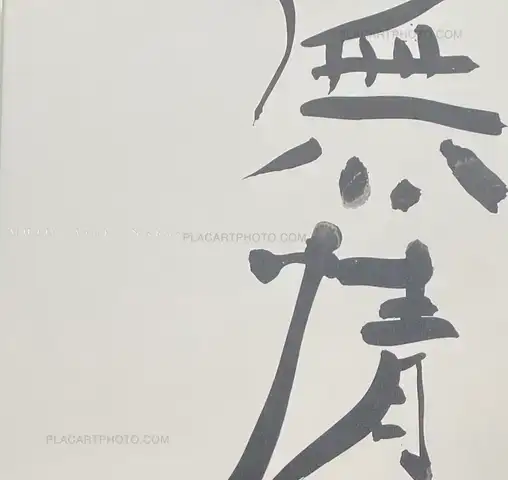 PLACARTPHOTO.COM
無
PLACARTPHOTO.COM
情
PLACARTPHOTO.COM